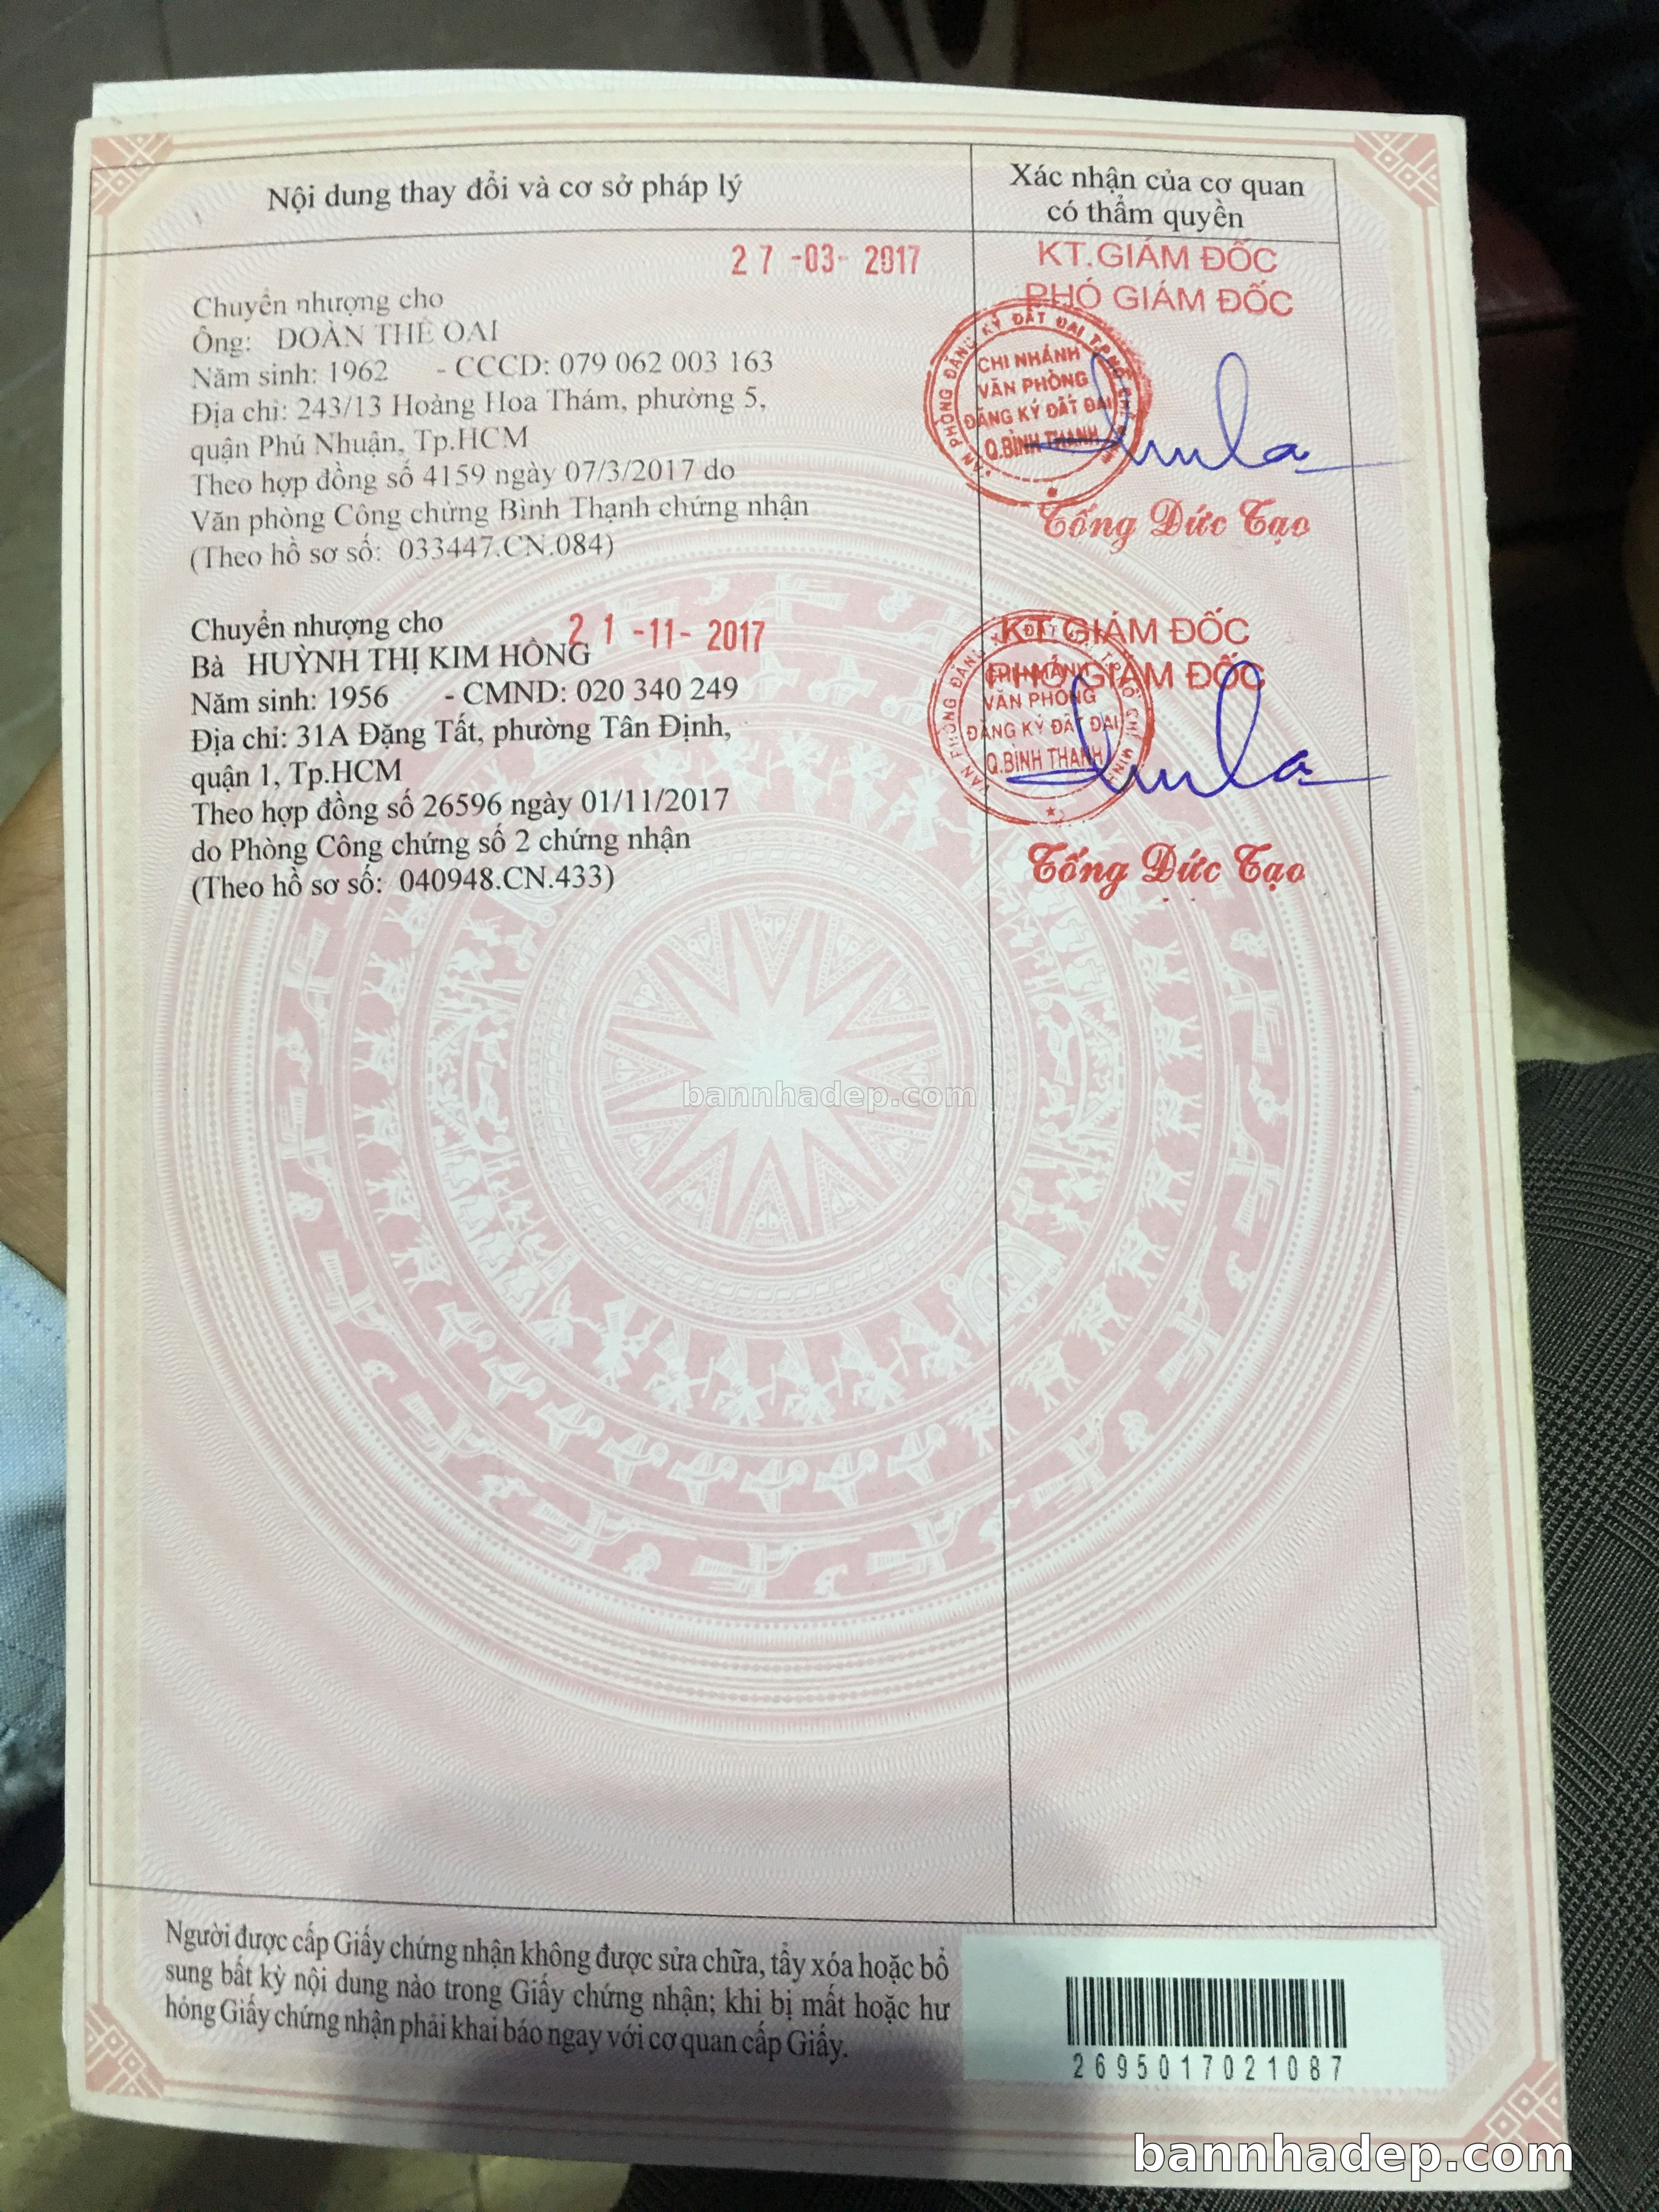 Nội dung thay đổi và cơ sở pháp lý
Xác nhận của cơ quan
có thẩm quyền
27 -03- 2017
Chuyển nhượng cho
Ông: ĐOÀN THẾ OAI
Năm sinh: 1962 - CCCD: 079 062 003 163
Địa chỉ: 243/13 Hoàng Hoa Thám, phường 5,
quận Phú Nhuận, Tp.HCM
Theo hợp đồng số 4159 ngày 07/3/2017 do
Văn phòng Công chứng Bình Thạnh chứng nhận
(Theo hồ sơ số: 033447.CN.084)
KT.GIÁM ĐỐC
PHÓ GIÁM ĐỐC
VĂN PHÒNG ĐĂNG KÝ ĐẤT ĐAI T.P HỒ CHÍ
CHI NHÁNH
VĂN PHÒNG
ĐĂNG KÝ ĐẤT ĐAI
Q.BÌNH THẠNH
Tống Đức Tạo
Chuyển nhượng cho
21 -11- 2017
Bà HUỲNH THỊ KIM HỒNG
Năm sinh: 1956 - CMND: 020 340 249
Địa chỉ: 31A Đặng Tất, phường Tân Định,
quận 1, Tp.HCM
Theo hợp đồng số 26596 ngày 01/11/2017
do Phòng Công chứng số 2 chứng nhận
(Theo hồ sơ số: 040948.CN.433)
KT.GIÁM ĐỐC
PHÓ GIÁM ĐỐC
VĂN PHÒNG ĐĂNG KÝ ĐẤT ĐAI T.P HỒ CHÍ MINH
CHI NHÁNH
VĂN PHÒNG
ĐĂNG KÝ ĐẤT ĐAI
Q.BÌNH THẠNH
Tống Đức Tạo
bannhadep.com
Người được cấp Giấy chứng nhận không được sửa chữa, tẩy xóa hoặc bổ
sung bất kỳ nội dung nào trong Giấy chứng nhận; khi bị mất hoặc hư
hỏng Giấy chứng nhận phải khai báo ngay với cơ quan cấp Giấy.
2695017021087
bannhadep.com